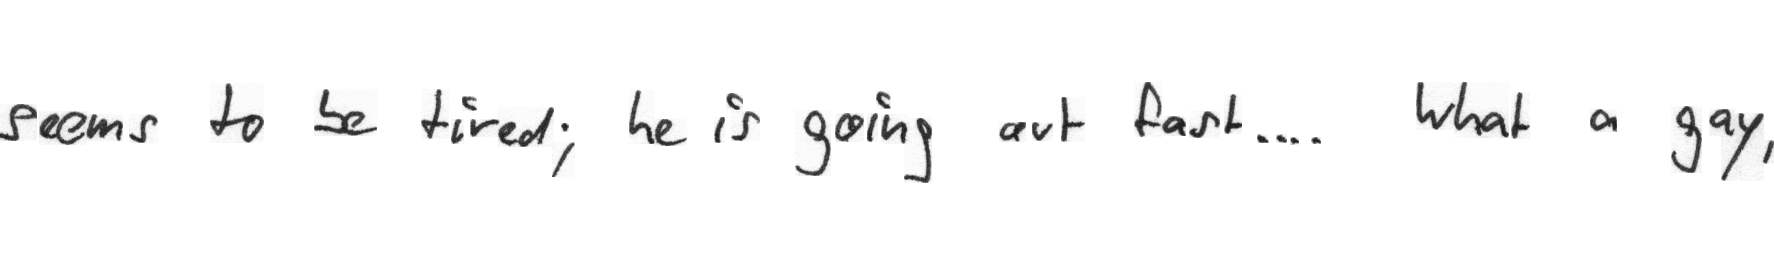 seems to be tired; he is going out fast.... What a gay,